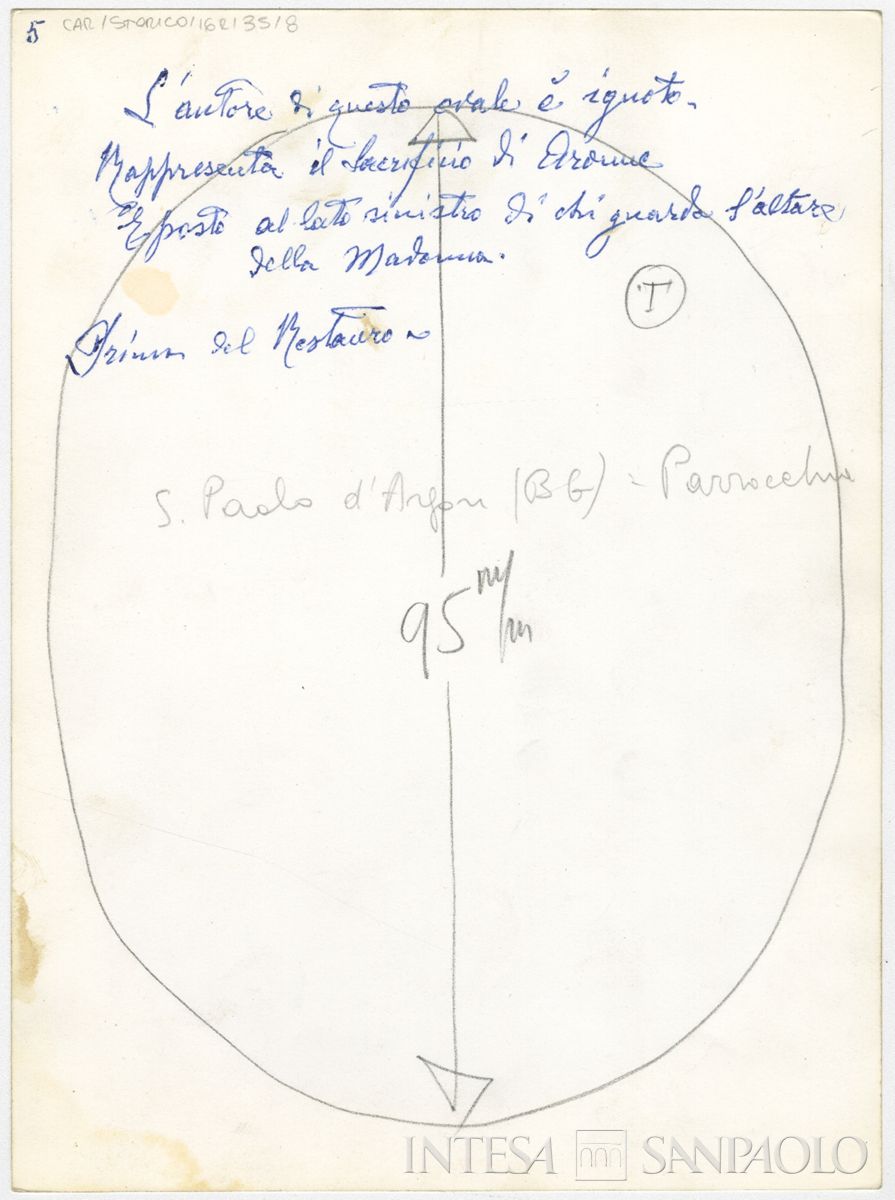 5 CAR/STORICO/16R/35/8
L'autore di questo ovale è ignoto.
Rappresenta il Sacrificio di Aronne
E' posto al lato sinistro di chi guarda l'altare
della Madonna.
T
Prima del Restauro
S. Paolo d'Argon (BG) - Parrocchia
95 m/m
INTESA SANPAOLO